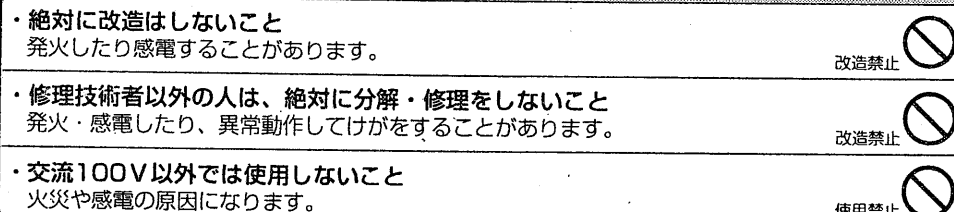 ・絶対に改造はしないこと
発火したり感電することがあります。
改造禁止
・修理技術者以外の人は、絶対に分解・修理をしないこと
発火・感電したり、異常動作してけがをすることがあります。
改造禁止
・交流100V以外では使用しないこと
火災や感電の原因になります。
使用禁止